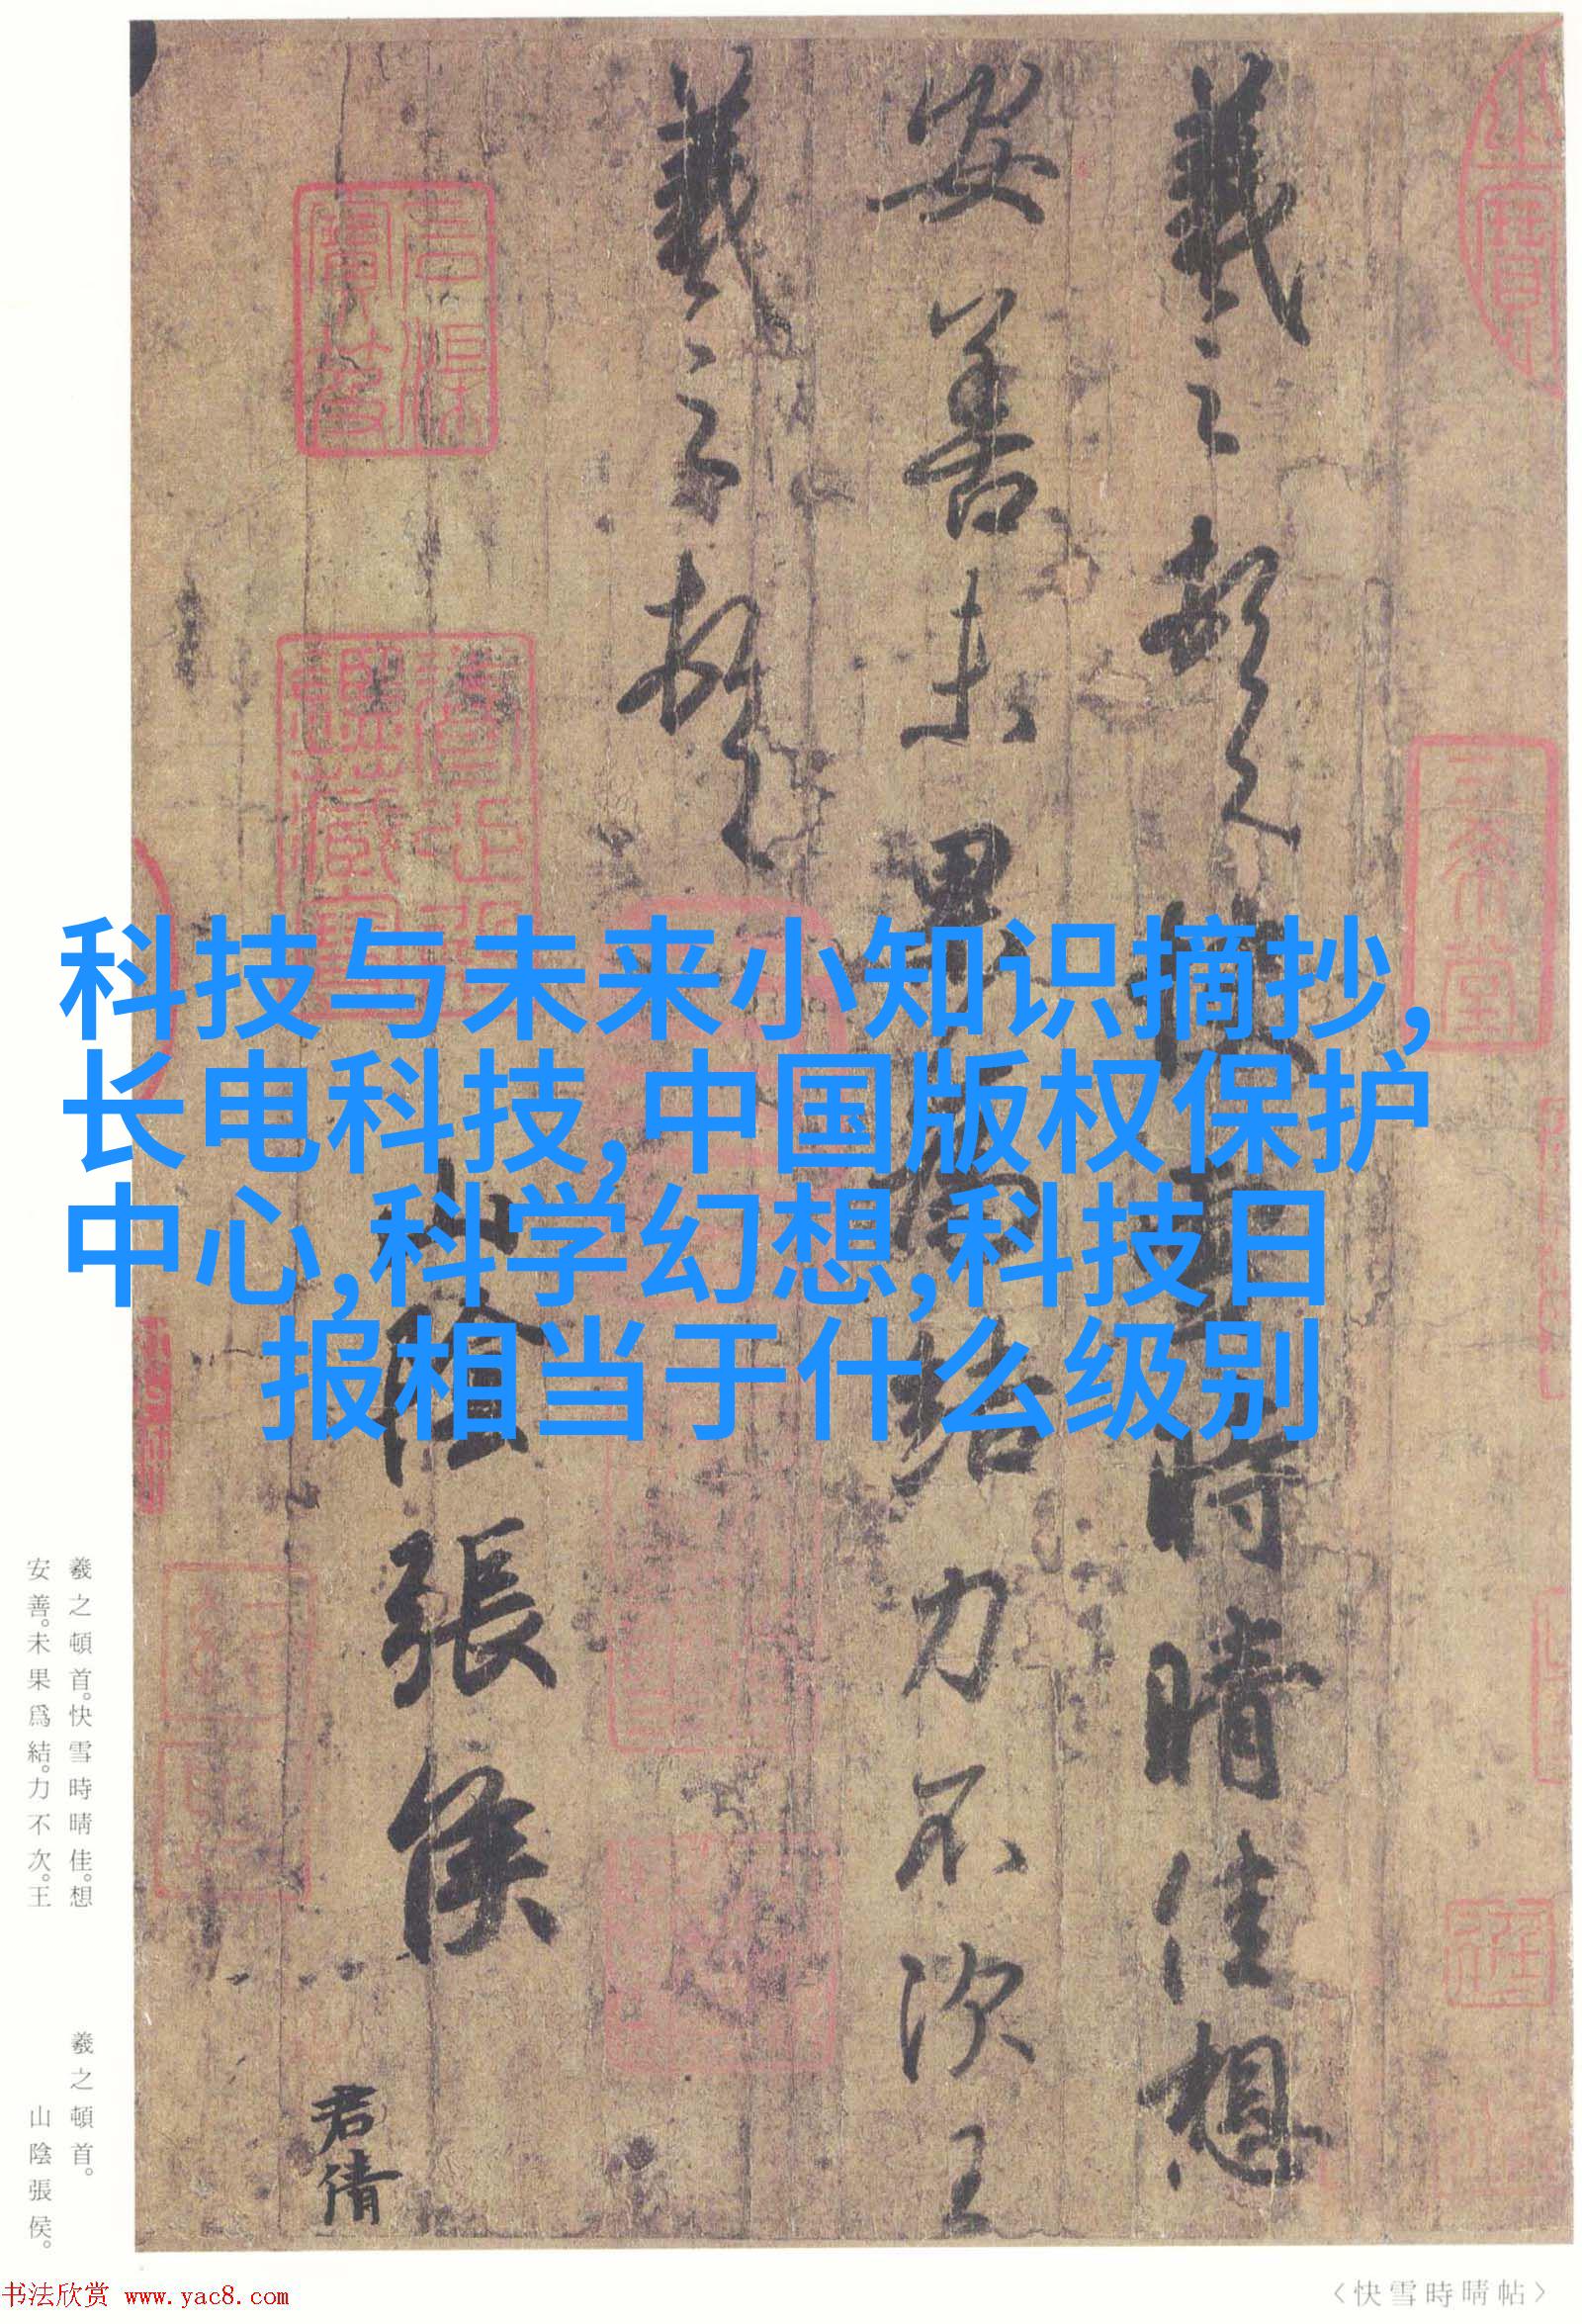 科技与未来小知识摘抄,
长电科技,中国版权保护
中心,科学幻想,科技日
报相当于什么级别
羲之頓首快雪時晴佳想
安善未果為結力不次王
羲之頓首
山陰張侯
君倩
羲之頓首。快雪時晴佳。想
安善。未果爲結。力不次。王
羲之頓首。
山陰張侯。
书法欣赏 www.yac8.com
〈快雪時晴帖〉